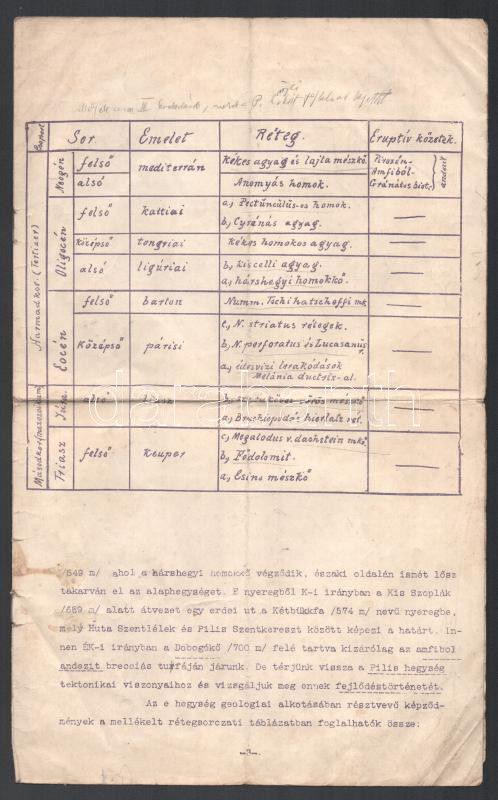 Csoport Sor Emelet Réteg. Eruptiv kőzetek.
Harmadkor. (Tertiaer)
Neogén felső mediterrán Kékes agyag és lajta mészkő Piroxén-
Amfiból-
Gránátos biot. } andezit
alsó Anomyás homok.
Oligocén felső kattiai a., Pectunculus-os homok. —
b., Cyrénás agyag.
középső tongriai kékes homokos agyag. —
alsó liguriai b., kiscelli agyag. —
a., hárshegyi homokkő.
Eocén felső barton Numm. Tschihatscheffi mk —
középső párisi c., N. striatus rétegek. —
b., N. perforatus és Lucasanus r.
a., édesvizi lerakódások
Melánia ductrix-al.
Másodkor (Mezozoikum)
Jura. alsó
a., Brachiopodás hierlatz rét. —
Triasz felső keuper c., Megalodus v. dachstein mkő. —
b., Fődolomit.
a., Esino mészkő
/549 m/ ahol a hárshegyi homokkő végződik, északi oldalán ismét lősz
takarván el az alaphegységet. E nyeregből K-i irányban a Kis Szoplák
/689 m/ alatt átvezet egy erdei ut a Kétbükkfa /574 m/ nevü nyeregbe,
mely Huta Szentlélek és Pilis Szentkereszt között képezi a határt. In-
nen ÉK-i irányban a Dobogókő /700 m/ felé tartva kizárólag az amfibol
andezit breccsiás tuffáján járunk. De térjünk vissza a Pilis hegység
tektonikai viszonyaihoz és vizsgáljuk meg ennek fejlődéstörténetét.
Az e hegység geologiai alkotásában résztvevő képződ-
mények a mellékelt rétegsorozati táblázatban foglalhatók össze:
-3.-
darabanth